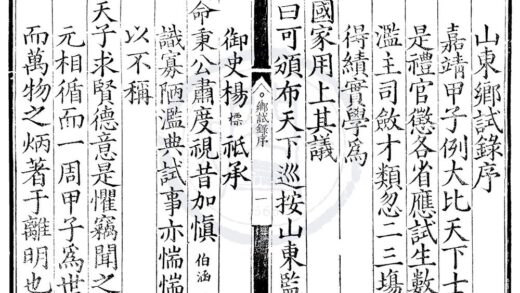 山東鄉試錄序
嘉靖甲子例大比天下士
是禮官懲各省應試生數
濫主司斂才類忽二三塲
得績實學為
國家用上其議
鄉試錄序
一
曰可頒布天下巡按山東監
御史楊標祗承
命秉公肅度視昔加慎伯涵
識寡陋濫典試事亦惴惴
以不稱
天子求賢德意是懼竊聞之
元相循而一周甲子為世
而萬物之炳著于離明也